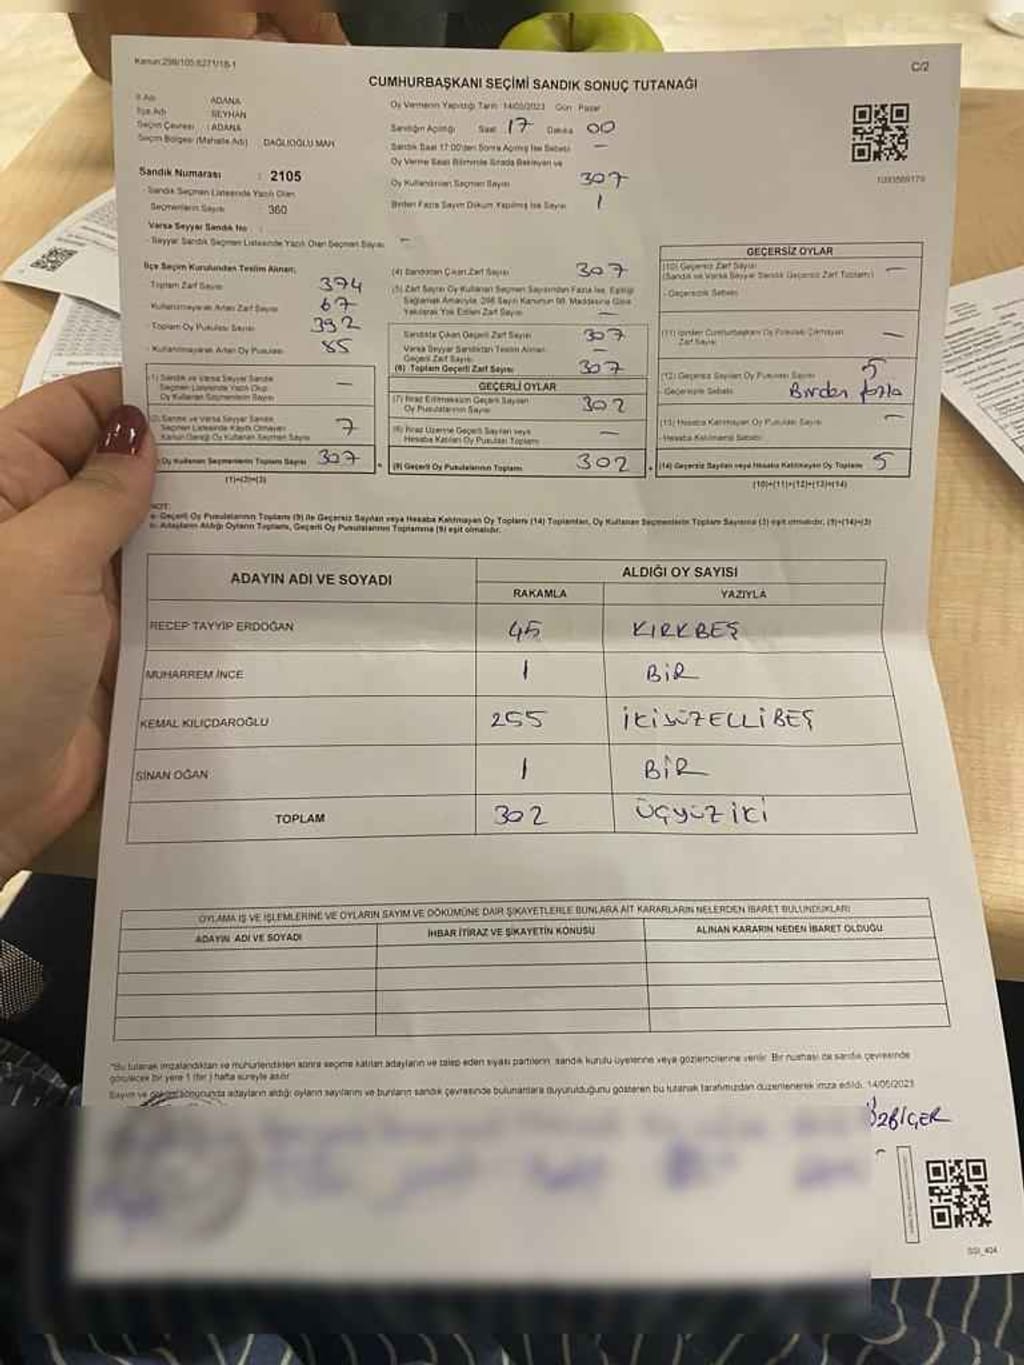 Kanun:298/105,6271/18-1
C/2
CUMHURBAŞKANI SEÇİMİ SANDIK SONUÇ TUTANAĞI
İl Adı ADANA
İlçe Adı SEYHAN
Seçim Çevresi : ADANA
Seçim Bölgesi (Mahalle Adı) DAĞLIOĞLU MAH
Sandık Numarası : 2105
- Sandık Seçmen Listesinde Yazılı Olan
Seçmenlerin Sayısı : 360
Varsa Seyyar Sandık No :
- Seyyar Sandık Seçmen Listesinde Yazılı Olan Seçmen Sayısı
Oy Vermenin Yapıldığı Tarih 14/05/2023 Gün Pazar
Sandığın Açıldığı Saat 17 Dakika 00
Sandık Saat 17:00'den Sonra Açılmış İse Sebebi —
Oy Verme Saati Bitiminde Sırada Bekleyen ve
Oy Kullandırılan Seçmen Sayısı 307
Birden Fazla Sayım Döküm Yapılmış İse Sayısı 1
1093569179
İlçe Seçim Kurulundan Teslim Alınan:
Toplam Zarf Sayısı 374
Kullanılmayarak Artan Zarf Sayısı 67
- Toplam Oy Pusulası Sayısı 392
- Kullanılmayarak Artan Oy Pusulası 85
(1) Sandık ve Varsa Seyyar Sandık
Seçmen Listesinde Yazılı Olup
Oy Kullanan Seçmenlerin Sayısı —
(2) Sandık ve Varsa Seyyar Sandık
Seçmen Listesinde Kayıtlı Olmayan
Kanun Gereği Oy Kullanan Seçmen Sayısı 7
Oy Kullanan Seçmenlerin Toplam Sayısı 307
(1)+(2)=(3)
(4) Sandıktan Çıkan Zarf Sayısı 307
(5) Zarf Sayısı Oy Kullanan Seçmen Sayısından Fazla İse, Eşitliği
Sağlamak Amacıyla, 298 Sayılı Kanunun 98. Maddesine Göre
Yakılarak Yok Edilen Zarf Sayısı —
Sandıkta Çıkan Geçerli Zarf Sayısı 307
Varsa Seyyar Sandıktan Teslim Alınan
Geçerli Zarf Sayısı —
(6) Toplam Geçerli Zarf Sayısı 307
GEÇERLİ OYLAR
(7) İtiraz Edilmeksizin Geçerli Sayılan
Oy Pusulalarının Sayısı 302
(8) İtiraz Üzerine Geçerli Sayılan veya
Hesaba Katılan Oy Pusulaları Toplamı —
(9) Geçerli Oy Pusulalarının Toplamı 302
GEÇERSİZ OYLAR
(10) Geçersiz Zarf Sayısı
(Sandık ve Varsa Seyyar Sandık Geçersiz Zarf Toplamı) —
- Geçersizlik Sebebi
(11) İçinden Cumhurbaşkanı Oy Pusulası Çıkmayan
Zarf Sayısı —
(12) Geçersiz Sayılan Oy Pusulası Sayısı 5
- Geçersizlik Sebebi Birden fazla
(13) Hesaba Katılmayan Oy Pusulası Sayısı —
- Hesaba Katılmama Sebebi
(14) Geçersiz Sayılan veya Hesaba Katılmayan Oy Toplamı 5
(10)+(11)+(12)+(13)=(14)
NOT:
a- Geçerli Oy Pusulalarının Toplamı (9) ile Geçersiz Sayılan veya Hesaba Katılmayan Oy Toplamı (14) Toplamları, Oy Kullanan Seçmenlerin Toplam Sayısına (3) eşit olmalıdır. (9)+(14)=(3)
b- Adayların Aldığı Oyların Toplamı, Geçerli Oy Pusulalarının Toplamına (9) eşit olmalıdır.
ADAYIN ADI VE SOYADI ALDIĞI OY SAYISI
RAKAMLA YAZIYLA
RECEP TAYYİP ERDOĞAN 45 KIRKBEŞ
MUHARREM İNCE 1 BİR
KEMAL KILIÇDAROĞLU 255 İKİYÜZELLİBEŞ
SİNAN OĞAN 1 BİR
TOPLAM 302 ÜÇYÜZİKİ
OYLAMA İŞ VE İŞLEMLERİNE VE OYLARIN SAYIM VE DÖKÜMÜNE DAİR ŞİKAYETLERLE BUNLARA AİT KARARLARIN NELERDEN İBARET BULUNDUKLARI
ADAYIN ADI VE SOYADI İHBAR İTİRAZ VE ŞİKAYETİN KONUSU ALINAN KARARIN NEDEN İBARET OLDUĞU
"Bu tutanak imzalandıktan ve mühürlendikten sonra seçime katılan adayların ve talep eden siyasi partilerin, sandık kurulu üyelerine veya gözlemcilerine verilir. Bir nüshası da sandık çevresinde
görülecek bir yere 1 (bir) hafta süreyle asılır
Sayım ve döküm sonucunda adayların aldığı oyların sayılarını ve bunların sandık çevresinde bulunanlara duyurulduğunu gösteren bu tutanak tarafımızdan düzenlenerek imza edildi. 14/05/2023
ÖZBİÇER
SSI_404